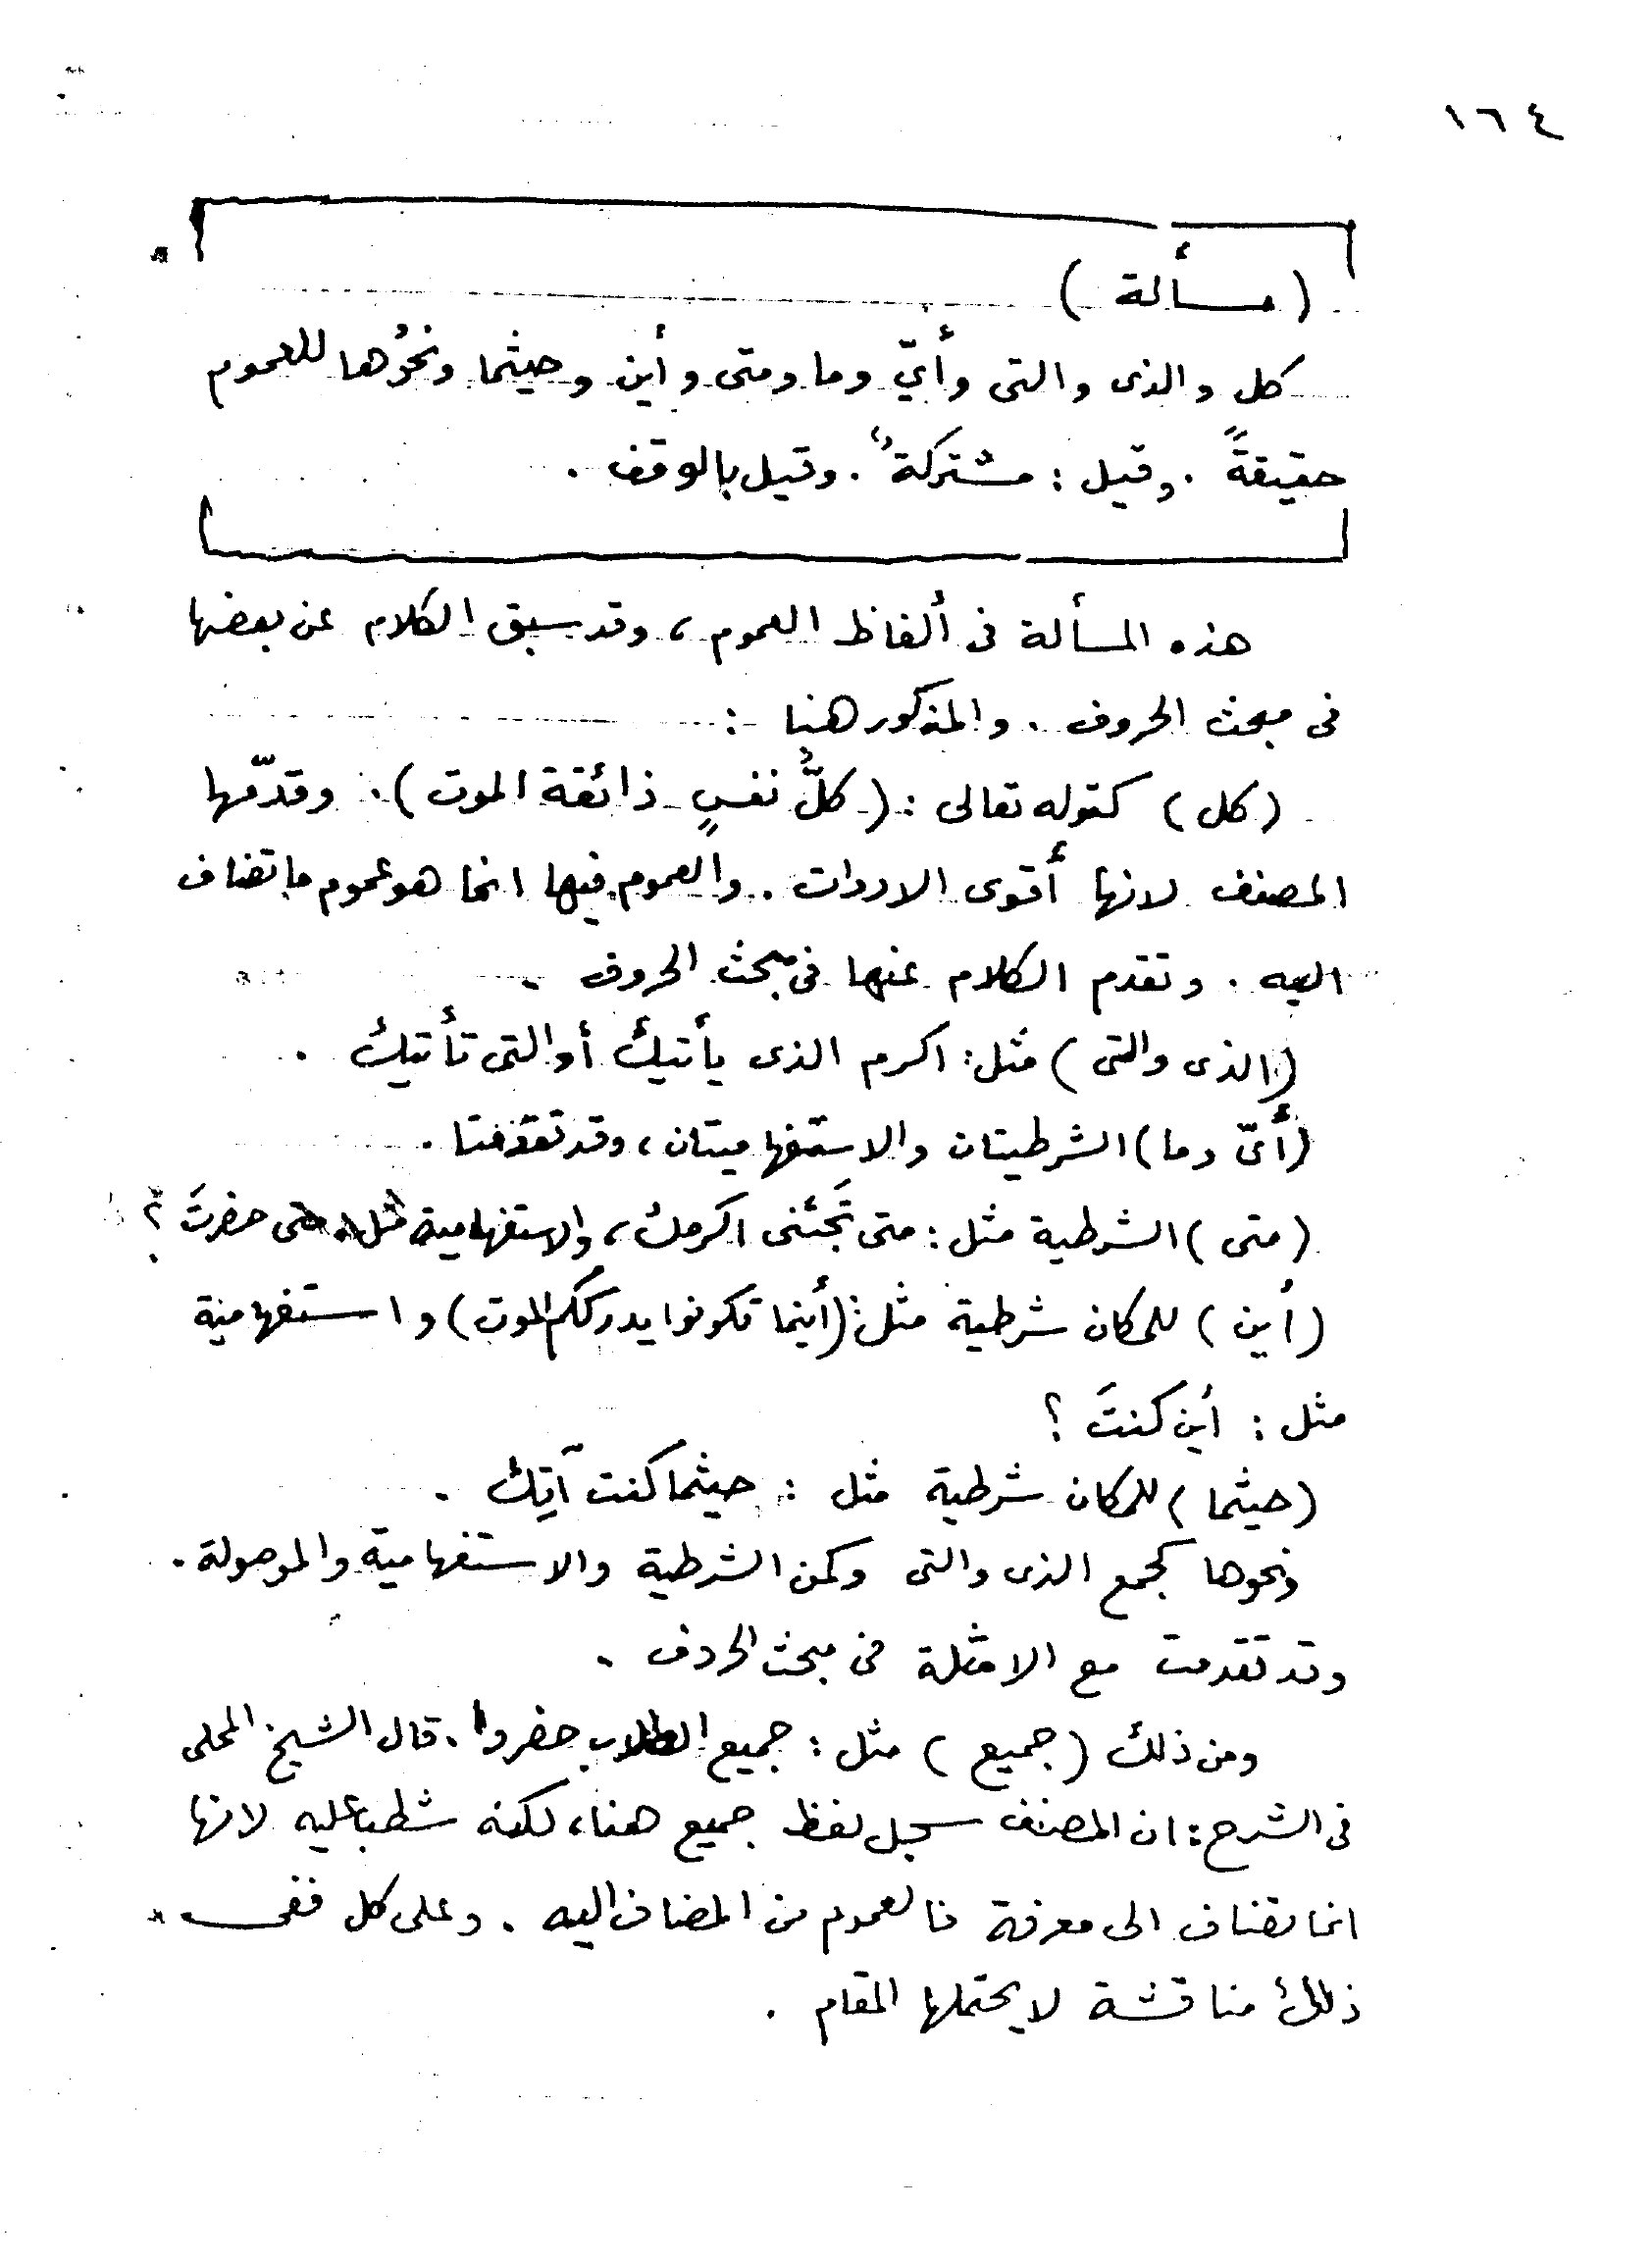 ١٦٤
(مسألة)
كل والذى والتى وأيّ وما ومتى وأين وحيثما ونحوُها للعموم
حقيقةً . وقيل : مشتركةٌ . وقيل بالوقف .
هذه المسألة فى ألفاظ العموم ، وقد سبق الكلام عن بعضها
فى مبحث الحروف . والمذكور هنا :
(كل) كقوله تعالى : (كلُّ نفسٍ ذائقة الموت) . وقدّمها
المصنف لانها أقوى الادوات . والعموم فيها انما هو عموم ما تضاف
اليه . وتقدم الكلام عنها فى مبحث الحروف .
(الذى والتى) مثل : اكرم الذى يأتيك أو التى تأتيك .
(أىّ وما) الشرطيتان والاستفهاميتان ، وقد تقدمتا .
(متى) الشرطية مثل : متى تَجئنى اكرمك ، والاستفهامية مثل متى حضرتَ ؟
(أين) للمكان شرطية مثل : (أينما تكونوا يدرككم الموت) واستفهامية
مثل : أين كنتَ ؟
(حيثما) للمكان شرطية مثل : حيثما كنت آتِك .
ونحوها كجمع الذى والتى وكمن الشرطية والاستفهامية والموصولة .
وقد تقدمت مع الامثلة فى مبحث الحروف .
ومن ذلك (جميع) مثل : جميع الطلاب حضروا . قال الشيخ المحلى
فى الشرح : ان المصنف سجل لفظ جميع هنا ، لكنه شطب عليه لانها
انما تضاف الى معرفة فالعموم من المضاف اليه . وعلى كل ففى
ذلك مناقشة لا يحتملها المقام .